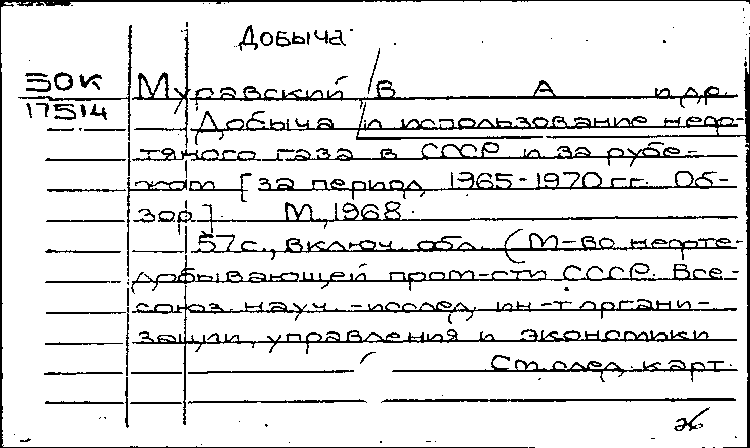 Добыча
ЗОК
17514
Муравский В А и др.
Добыча и использование нефтяного газа в СССР и за рубе-
жом [за период 1965-1970 гг. Об-
зор]. М., 1968.
57 с., включ. обл. (М-во нефте-
добывающей пром-сти СССР. Все-
союз. науч.-исслед. ин-т органи-
зации, управления и экономики
См. след. карт.